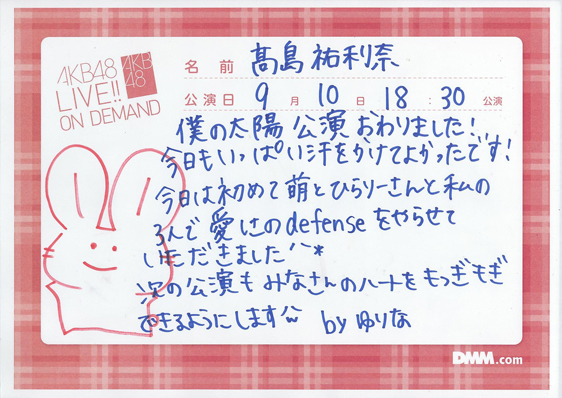 AKB48
LIVE!!
ON DEMAND
AKB
48
名前 髙島 祐利奈
公演日 9月10日 18:30公演
僕の太陽公演おわりました!
今日もいっぱい汗をかけてよかったです!
今日は初めて萌とひらりーさんと私の
3人で愛しさのdefenseをやらせて
いただきました^^*
次の公演もみなさんのハートをもっぎもぎ
できるようにします^^ by ゆりな
DMM.com